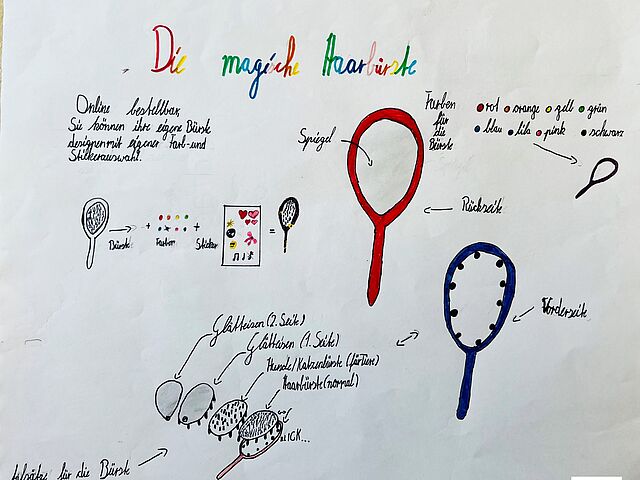 Die magische Haarbürste
Online bestellbar,
Sie können ihre eigene Bürste
designen mit eigener Farb-und
Stickerauswahl.
Farben
für
die
Bürste
rot orange gelb grün
blau lila pink schwarz
Spiegel
Rückseite
Bürste + Farben + Sticker =
Vorderseite
Glätteisen (2. Seite)
Glätteisen (1. Seite)
Hunde/Katzenbürste (für Tiere)
Haarbürste (normal)
KLICK...
für die Bürste